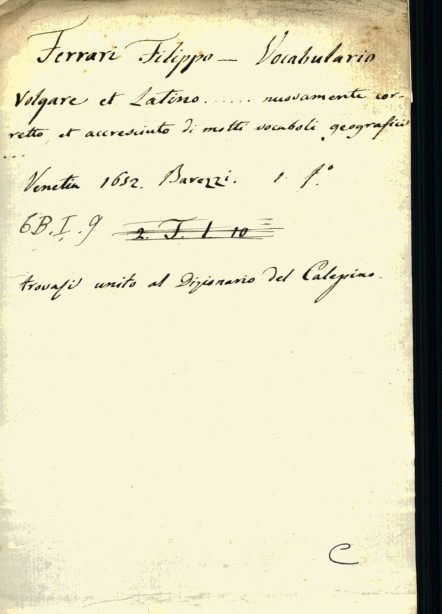 Ferrari Filippo — Vocabulario
Volgare et Latino ...... nuovamente cor-
retto, et accresciuto di molti vocaboli geografici
...
Venetia 1652. Barezzi. 1. f.°
6B.I.9 2. T. I. 10
trovasi unito al Dizionario del Calepino.
C